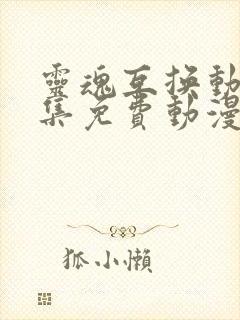 靈魂互換動
集免費動漫
狐小懶